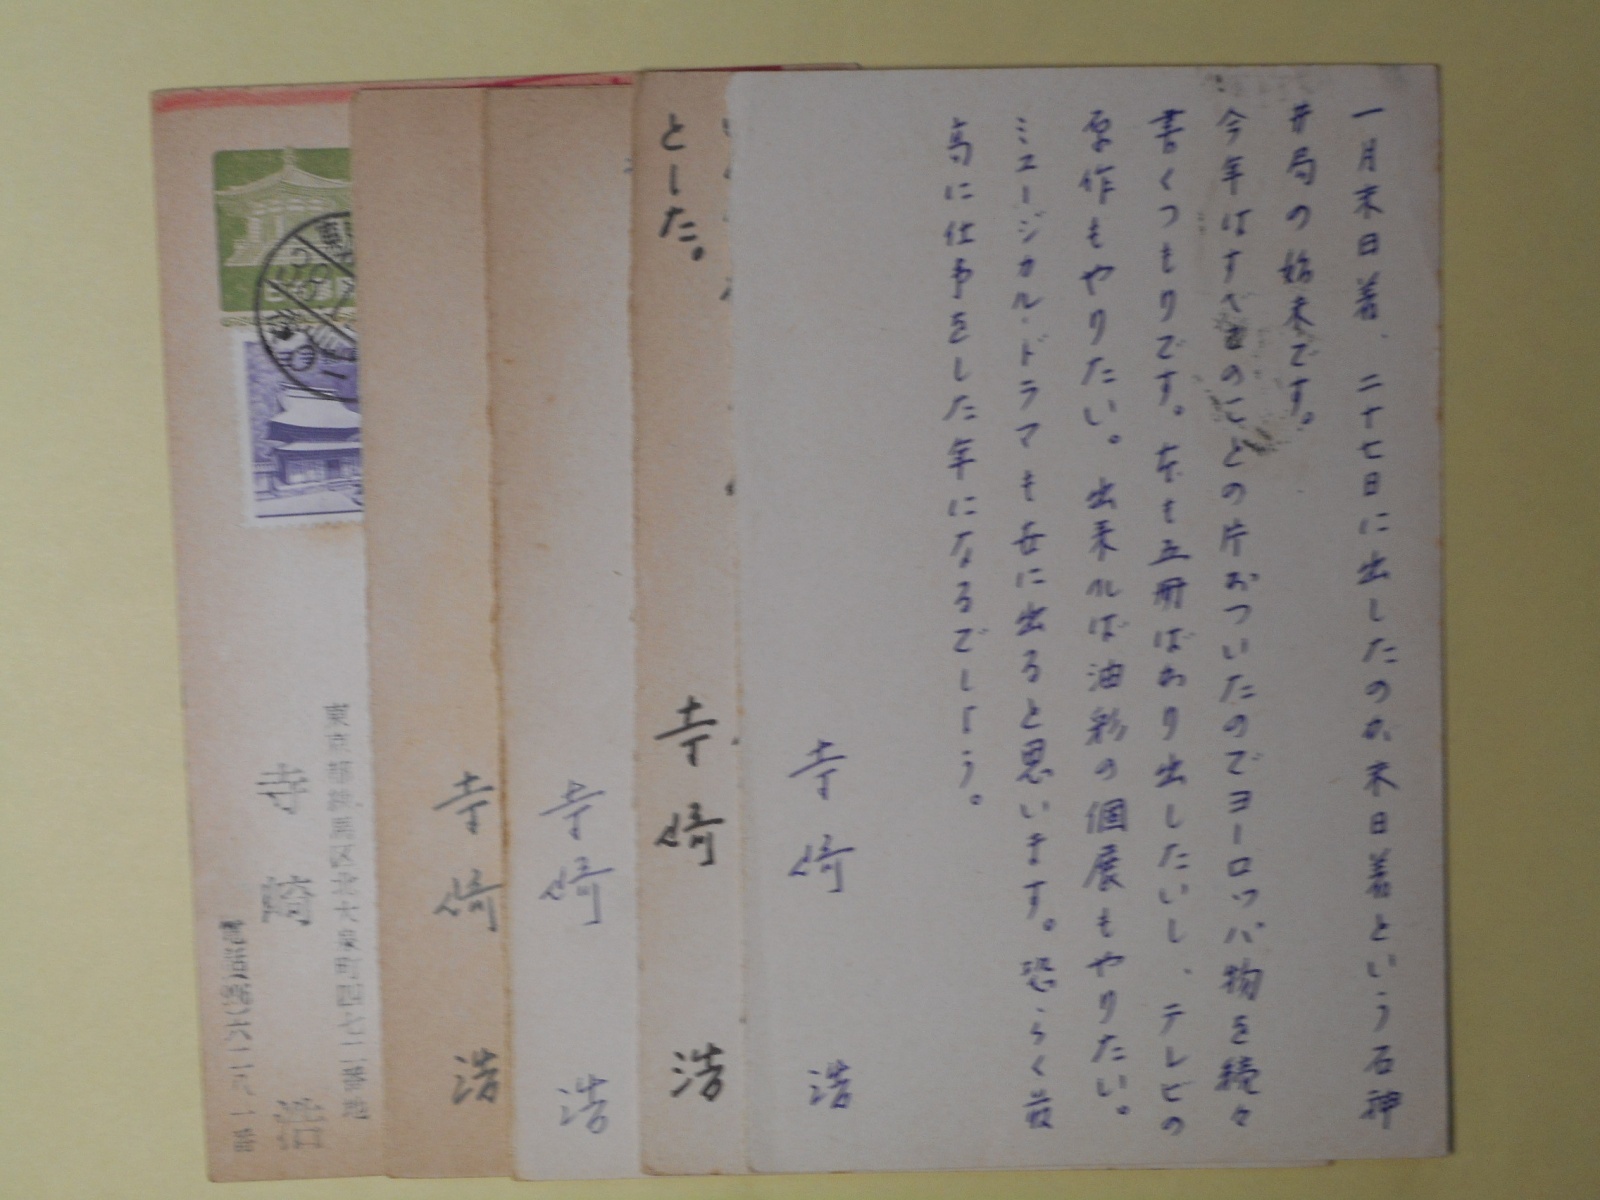 一月末日着、二十七日に出したのが末日着という石神
井局の始末です。
今年はすべきのことの片がついたのでヨーロッパ物を続々
書くつもりです。本も五冊ばかり出したいし、テレビの
原作もやりたい。出来れば油彩の個展もやりたい。
ミュージカル・ドラマも世に出ると思います。恐らく最
高に仕事をした年になるでしょう。
寺崎 浩
とした。
寺崎 浩
寺崎 浩
寺崎 浩
東京都練馬区北大泉町四七二番地
寺崎 浩